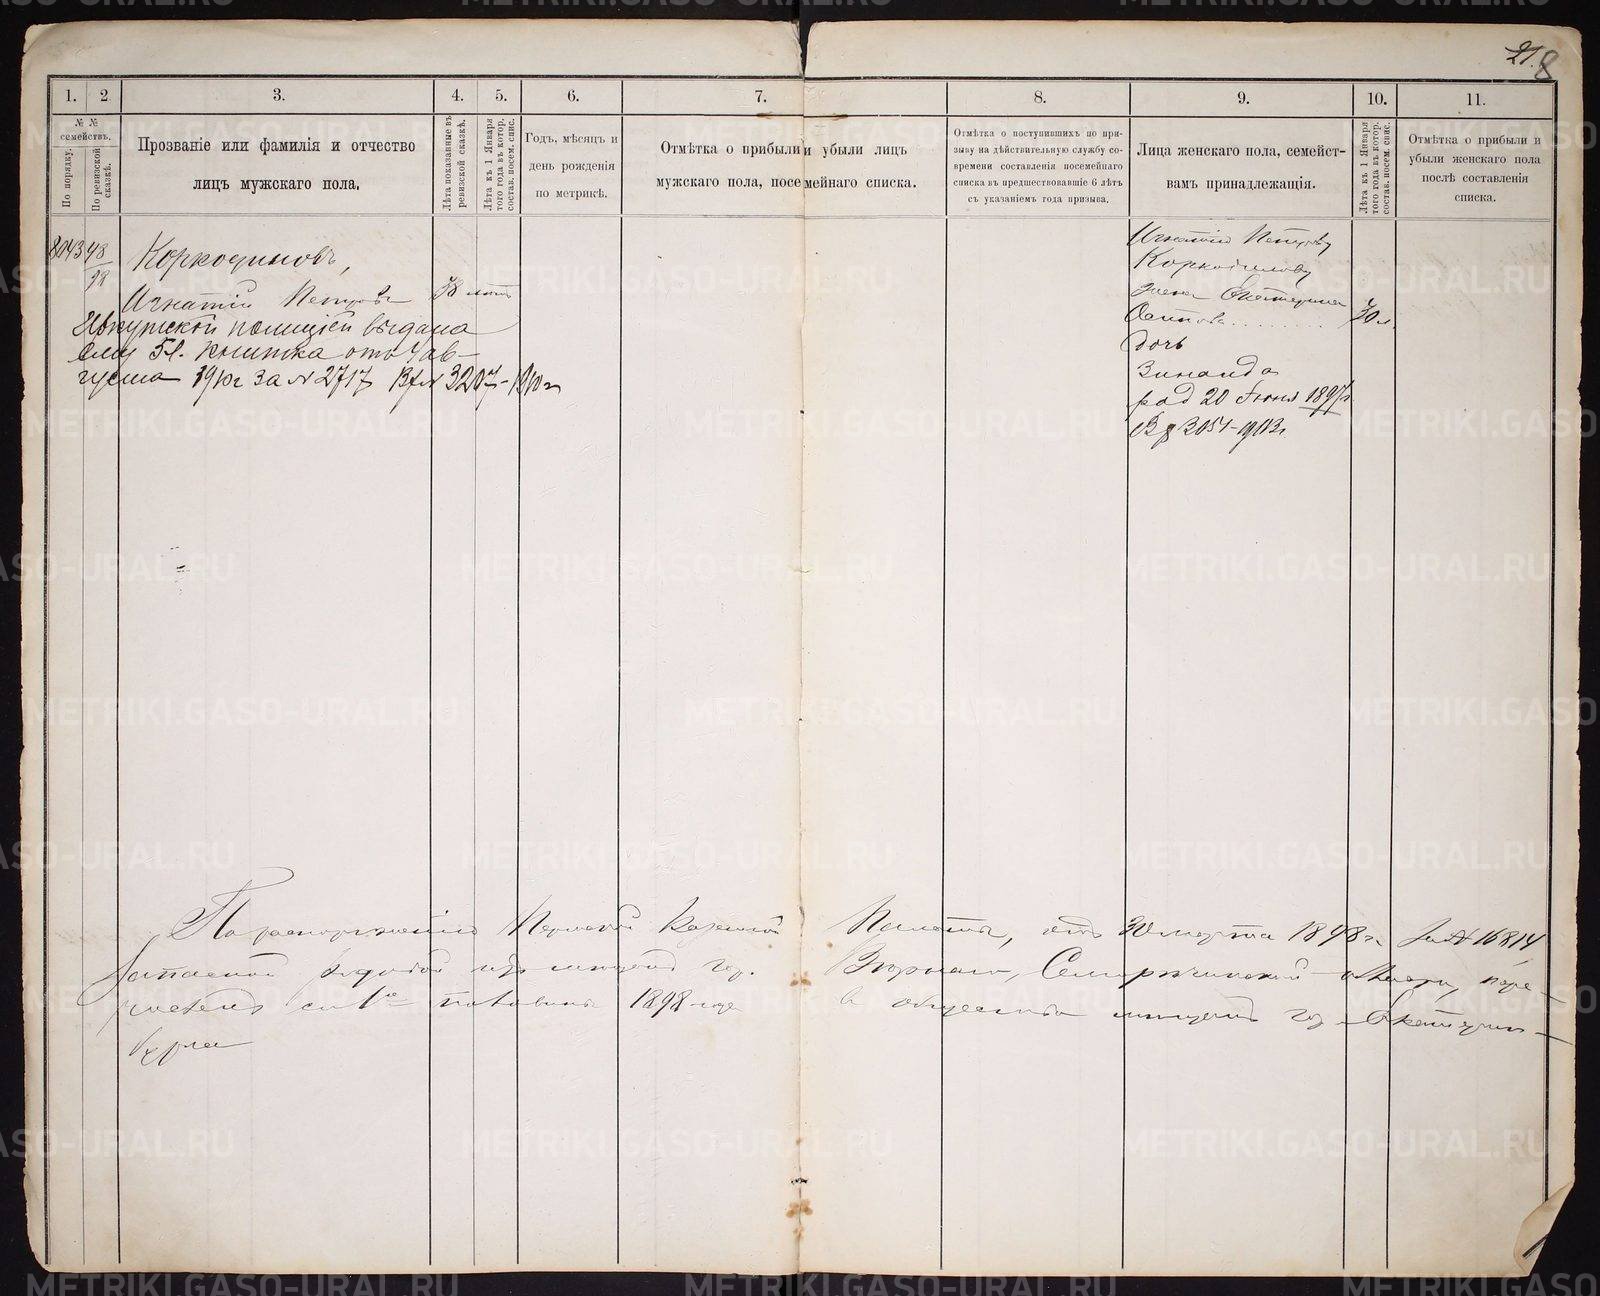 21. 8
1. 2 3. 4. 5. 6. 7. 8. 9. 10. 11.
№ №
семействъ.
По порядку.
По ревизской
сказкѣ.
Прозваніе или фамилія и отчество
лицъ мужскаго пола.
Лѣта показанные въ
ревизской сказкѣ.
Лѣта къ 1 Января
того года въ котор.
состав. посем. спис.
Годъ, мѣсяцъ и
день рожденія
по метрикѣ.
Отмѣтка о прибыли и убыли лицъ
мужскаго пола, посемейнаго списка.
Отмѣтка о поступившихъ по при-
зыву на дѣйствительную службу со-
времени составленія посемейнаго
списка въ предшествовавшіе 6 лѣтъ
съ указаніемъ года призыва.
Лица женскаго пола, семейст-
вамъ принадлежащія.
Лѣта къ 1 Января
того года въ котор.
состав. посем. спис.
Отмѣтка о прибыли и
убыли женскаго пола
послѣ составленія
списка.
98
98
Коркодиновъ,
Игнатій Петровъ 38 лѣтъ
полиціей выдана
ему 5 л. книжка отъ 4 ав-
густа 1910 г за № 2717 3207-1910 г
Игнатія Петрова
Коркодинова
жена Екатерина
Осипова 30 л.
дочь
Зинаида
род 20 Іюня 1897 г
3051-1913 г
По распоряженію Пермской Казенной Палаты, отъ 30 марта 1898 г. за № 16814,
изъ мещанъ гор. пере-
численъ съ 1й половины 1898 года въ общество мещанъ гор Екатерин-
бурга
METRIKI.GASO-URAL.RU